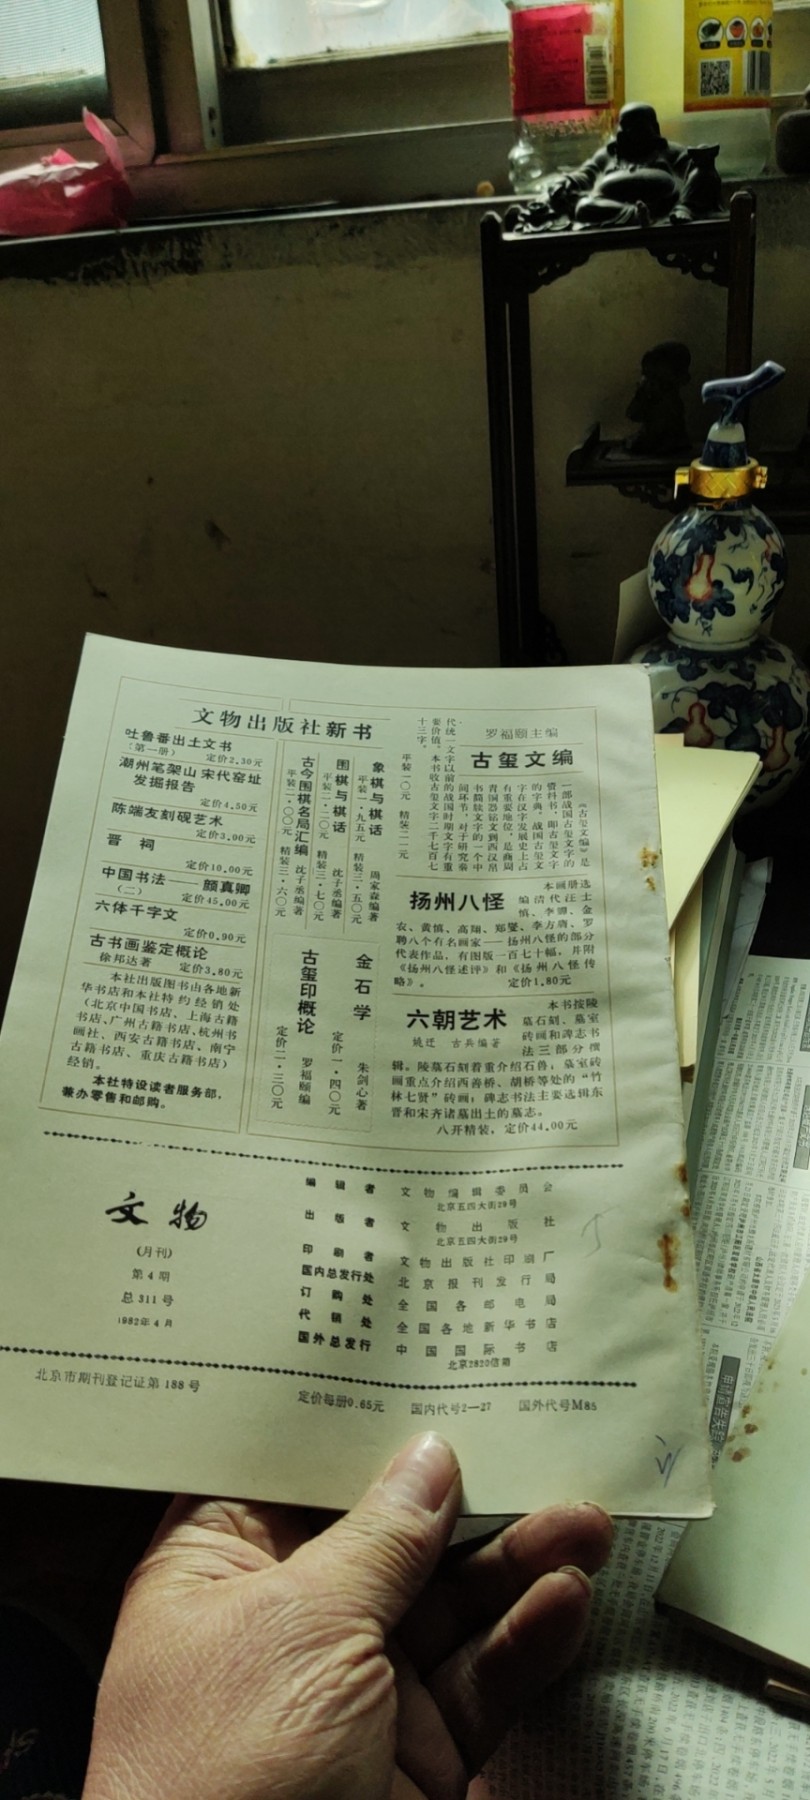 文物出版社新书
吐鲁番出土文书
（第一册） 定价2.30元
潮州笔架山宋代窑址
发掘报告
定价4.50元
陈端友刻砚艺术
定价3.00元
晋祠
定价10.00元
中国书法——颜真卿
（二） 定价45.00元
六体千字文
定价0.90元
古书画鉴定概论
徐邦达著 定价3.80元
本社出版图书由各地新
华书店和本社特约经销处
（北京中国书店、上海古籍
书店、广州古籍书店、杭州书
画社、西安古籍书店、南宁
古籍书店、重庆古籍书店）
经销。
本社特设读者服务部，
兼办零售和邮购。
象棋与棋话
周家森编著
平装一·九五元 精装三·五〇元
围棋与棋话
沈子丞编著
平装二·二〇元 精装三·七〇元
古今围棋名局汇编
沈子丞编著
平装二·〇〇元 精装三·六〇元
金石学
朱剑心著
定价一·四〇元
古玺印概论
罗福颐编
定价二·三〇元
罗福颐主编
古玺文编
《古玺文编》是
一部战国古玺文字的
资料书，即古玺文字
的字典。战国古玺文
字在汉字发展史上占
有重要地位，是商周
青铜器铭文到西汉帛
书简牍文字的一个中
间环节，对于研究秦
代统一文字以前的战国时期文字有重
要价值。本书收古玺文字二千七百七
十三字。
扬州八怪
本画册选
编清代汪士
慎、李鱓、金
农、黄慎、高翔、郑燮、李方膺、罗
聘八个有名画家——扬州八怪的部分
代表作品，有图版一百七十幅，并附
《扬州八怪述评》和《扬州八怪传
略》。 定价1.80元
六朝艺术
姚迁 古兵编著
本书按陵
墓石刻、墓室
砖画和碑志书
法三部分撰
辑。陵墓石刻着重介绍石兽；墓室砖
画重点介绍西善桥、胡桥等处的“竹
林七贤”砖画；碑志书法主要选辑东
晋和宋齐诸墓出土的墓志。
八开精装，定价44.00元
文物
（月刊）
第4期
总311号
1982年4月
编辑者 文物编辑委员会
北京五四大街29号
出版者 文物出版社
北京五四大街29号
印刷者 文物出版社印刷厂
国内总发行处 北京报刊发行局
订购处 全国各邮电局
代销处 全国各地新华书店
国外总发行 中国国际书店
北京2820信箱
北京市期刊登记证第188号
定价每册0.65元 国内代号2—27 国外代号M85